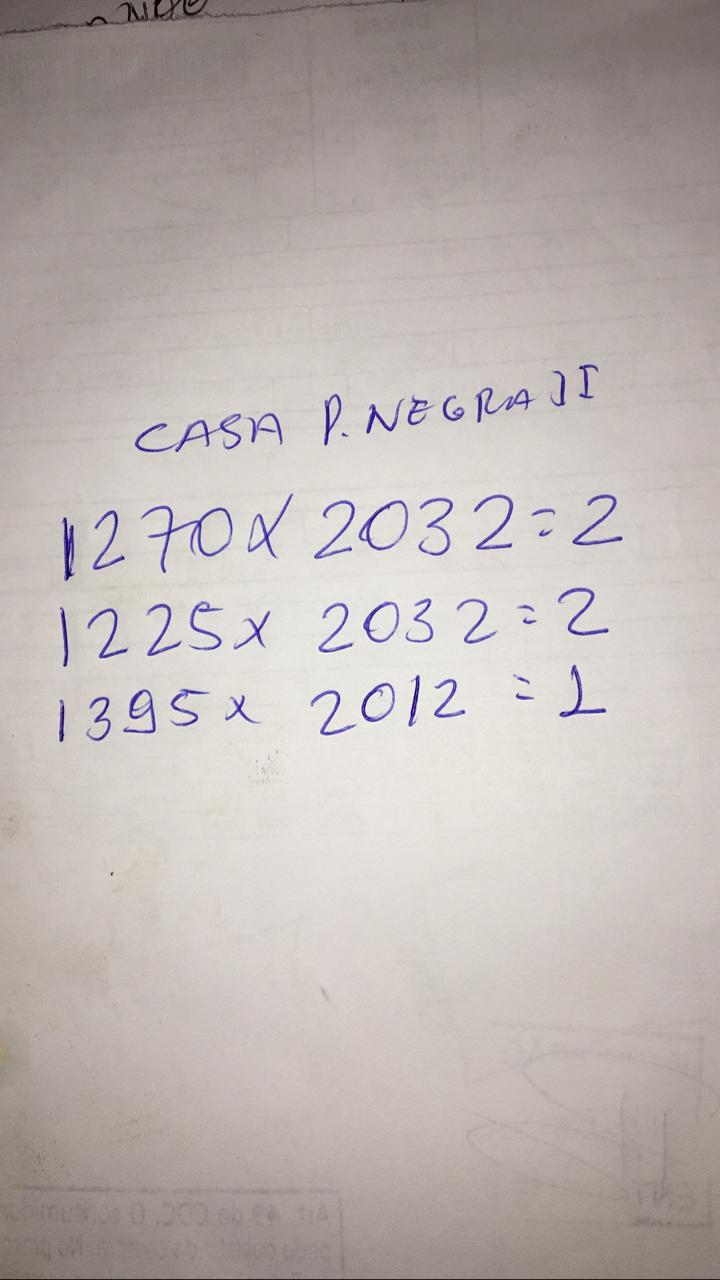 CASA P. NEGRA II
1270 x 2032 = 2
1225 x 2032 = 2
1395 x 2012 = 1